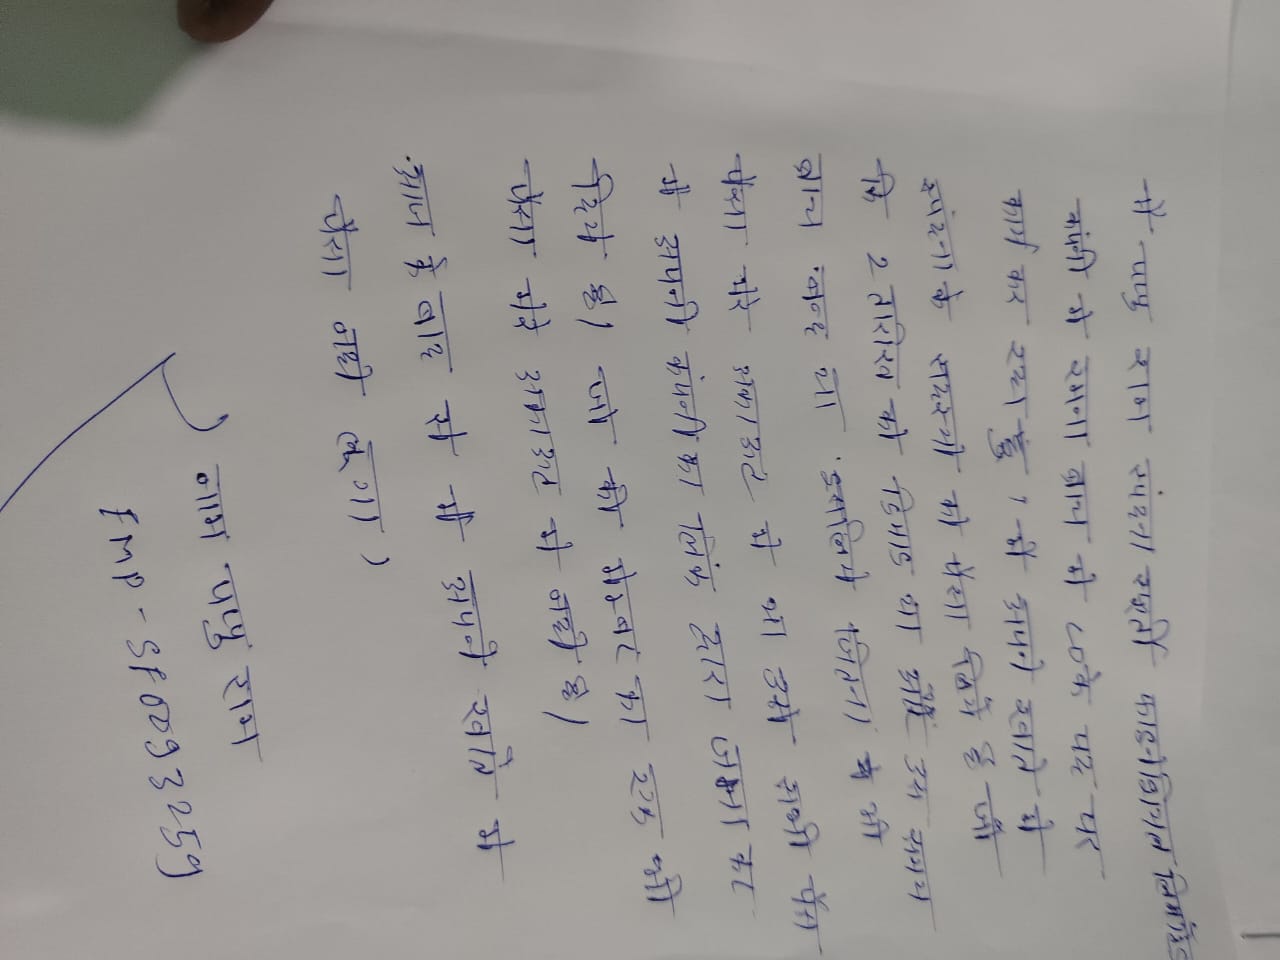 मैं पप्पु राम स्पंदना स्फूर्ती फाइनेंशियल लिमीटेड
कंपनी में रामना ब्रान्च में LO के पद पर
कार्य कर रहा हुँ। में अपने खाते में
स्पंदना के सदस्यो को पैसा लिये है जो
कि 2 तारीख को डिमांड था और उस समय
ब्रान्च बन्द था इसलिये जितना भी
पैसा मेरे अकाउंट में था उसे सभी पैसा
में अपनी कंपनी का लिंक द्वारा जमा कर
दिया हुँ। जो की मेम्बर का एक भी
पैसा मेरे अकाउंट में नही है।
आज के बाद से में अपने खाते में
पैसा नही लूंगा)
नाम पप्पु राम
EMP - SF0093259